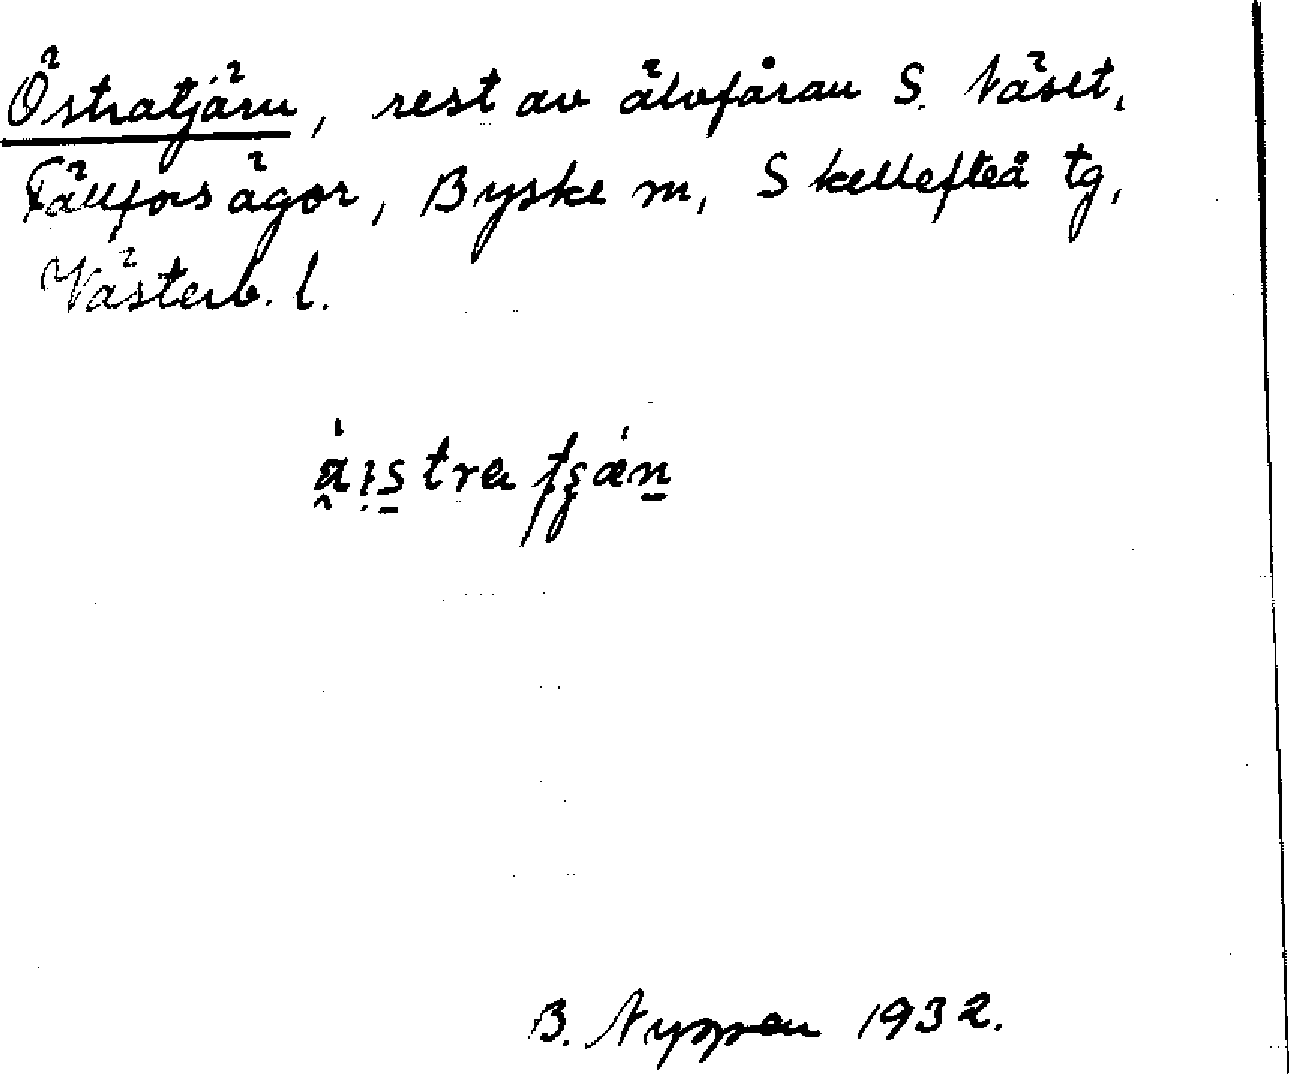 Östratjärn, rest av älvfåran S. Näset,
Fällfors ägor, Byske sn, Skellefteå tg,
Västerb. l.
B. Nyppen 1932.